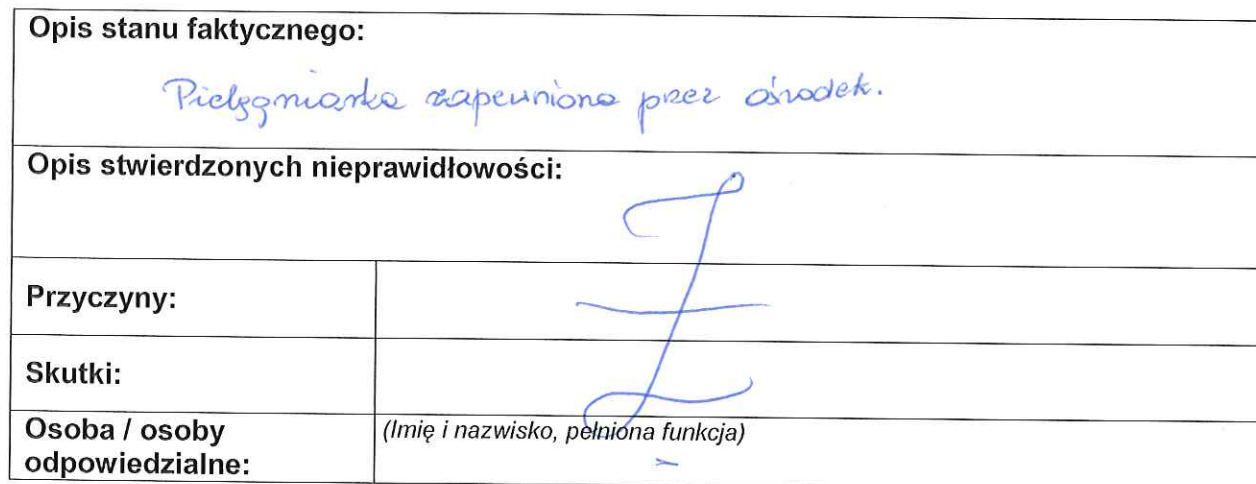 Opis stanu faktycznego:
Pielęgniarka zapewniona przez ośrodek.
Opis stwierdzonych nieprawidłowości:
Przyczyny:
Skutki:
Osoba / osoby
odpowiedzialne:
(Imię i nazwisko, pełniona funkcja)